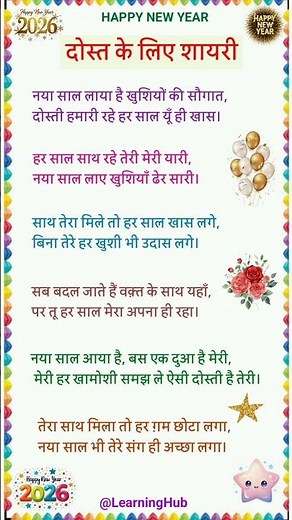 Happy New Year
2026
HAPPY NEW YEAR
HAPPY
NEW
YEAR
दोस्त के लिए शायरी
नया साल लाया है खुशियों की सौगात,
दोस्ती हमारी रहे हर साल यूँ ही खास।
हर साल साथ रहे तेरी मेरी यारी,
नया साल लाए खुशियाँ ढेर सारी।
साथ तेरा मिले तो हर साल खास लगे,
बिना तेरे हर खुशी भी उदास लगे।
सब बदल जाते हैं वक़्त के साथ यहाँ,
पर तू हर साल मेरा अपना ही रहा।
नया साल आया है, बस एक दुआ है मेरी,
मेरी हर खामोशी समझ ले ऐसी दोस्ती है तेरी।
तेरा साथ मिला तो हर ग़म छोटा लगा,
नया साल भी तेरे संग ही अच्छा लगा।
Happy New Year
2026
@LearningHub